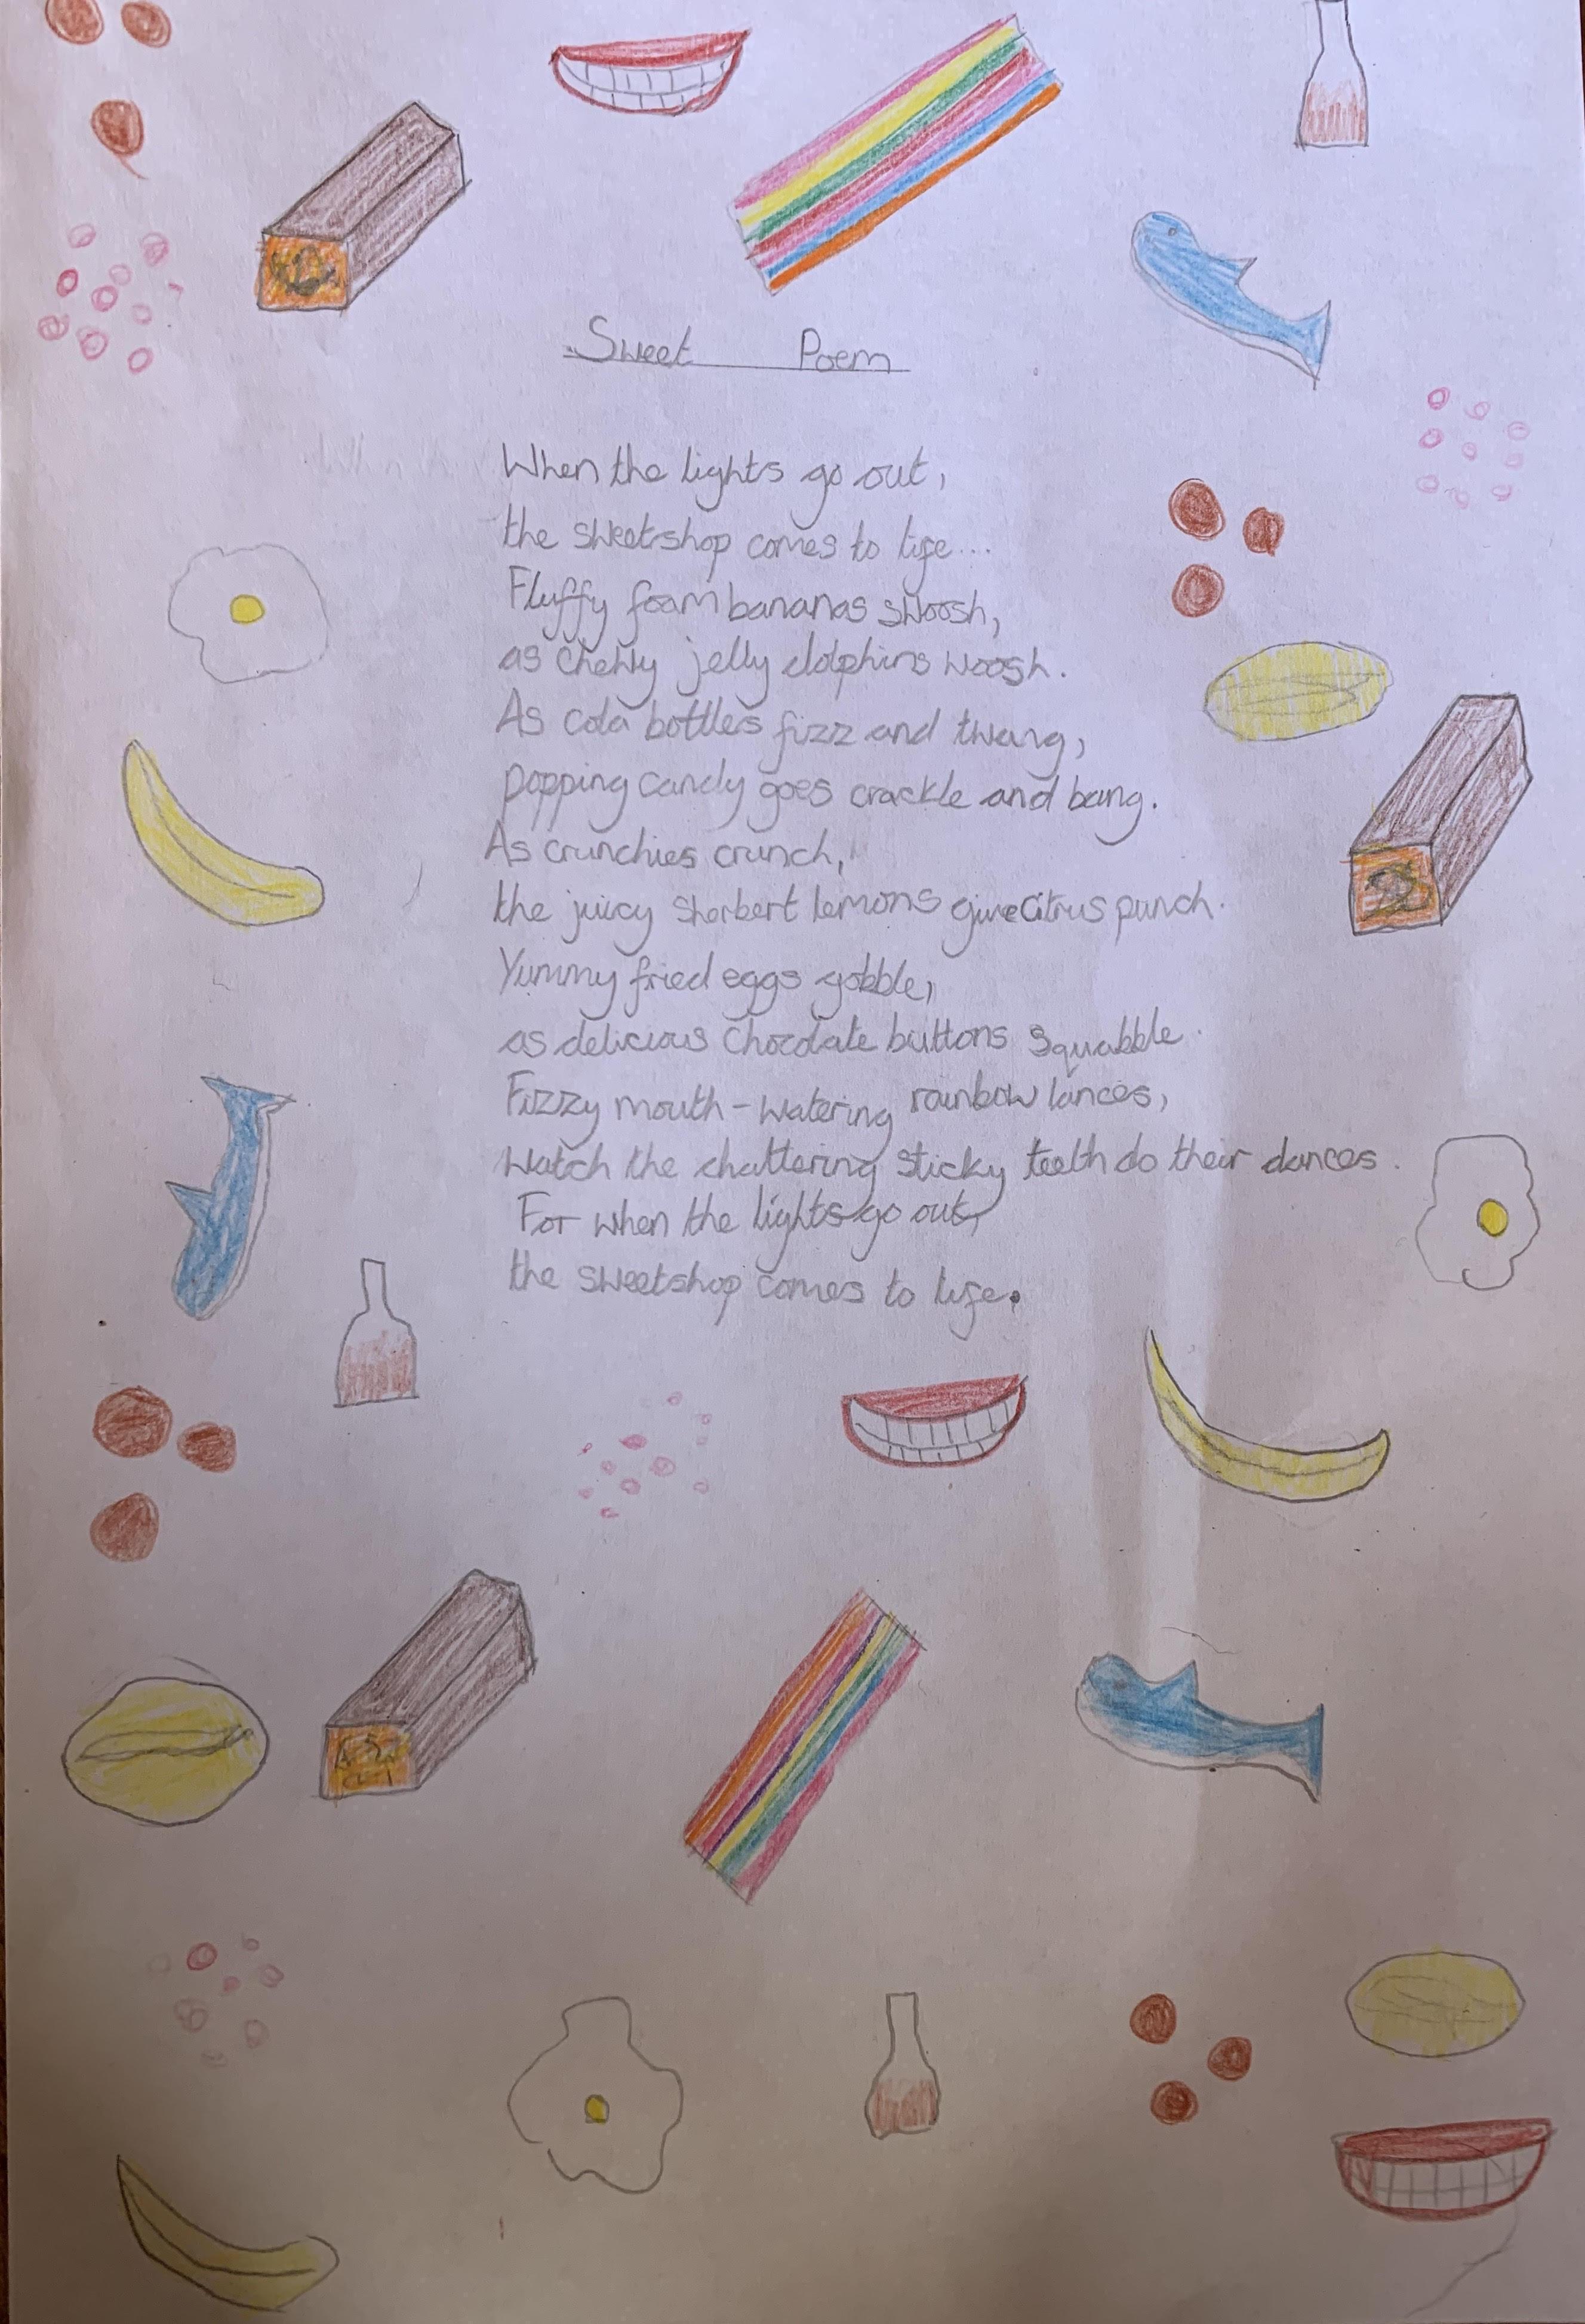 Sweet Poem
When the lights go out,
the sweetshop comes to life...
Fluffy foam bananas swoosh,
as chewy jelly dolphins woosh.
As cola bottles fizz and twang,
popping candy goes crackle and bang.
As crunchies crunch,
the juicy sherbert lemons give citrus punch.
Yummy fried eggs gobble,
as delicious chocolate buttons squabble.
Fizzy mouth-watering rainbow lances,
watch the chattering sticky teeth do their dances.
For when the lights go out,
the sweetshop comes to life.